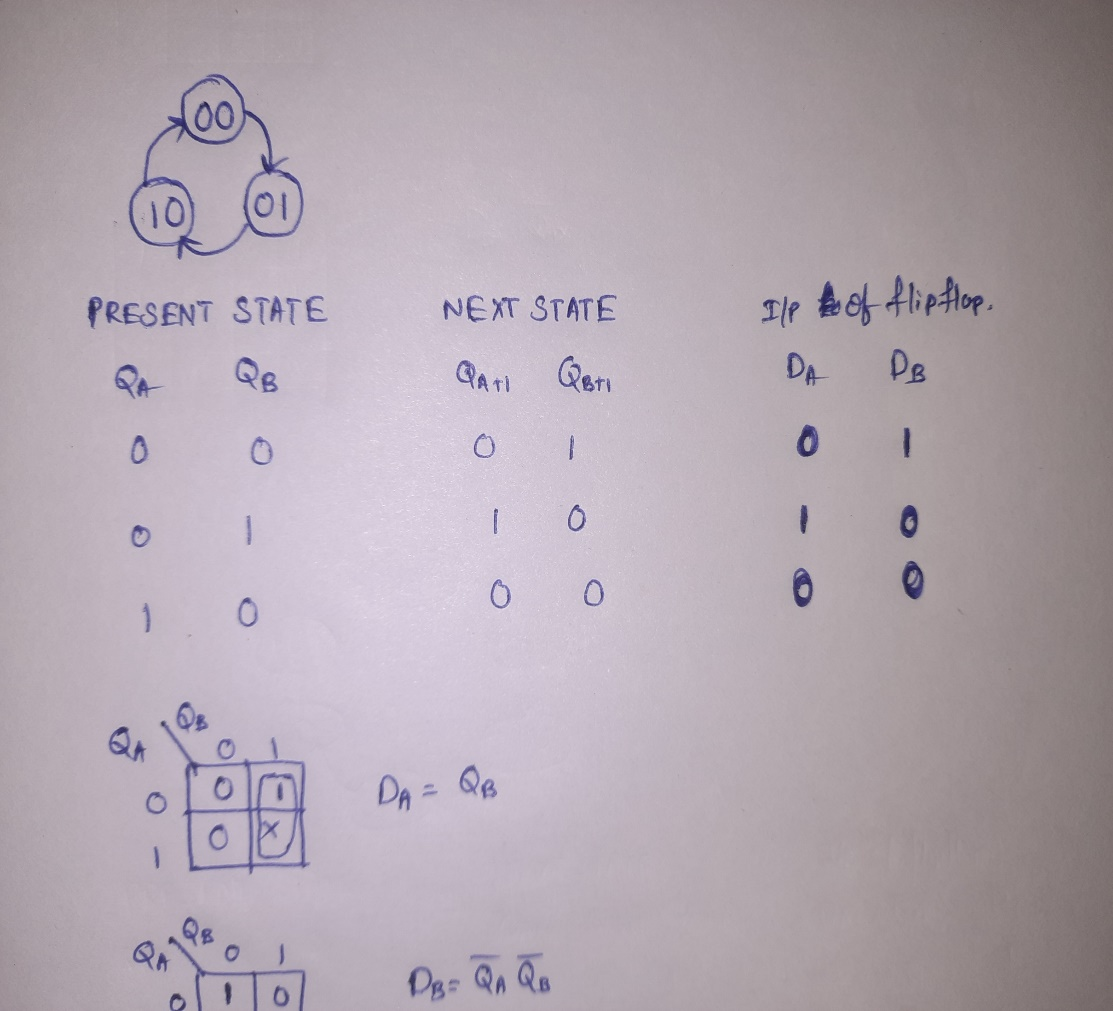 00
10 01
PRESENT STATE NEXT STATE I/P of flipflop.
QA QB QA+1 QB+1 DA DB
0 0 0 1 0 1
0 1 1 0 1 0
1 0 0 0 0 0
QA QB
0 1
0 0 1 DA = QB
1 0 X
QA QB 0 1
0 1 0 DB = Q̅A Q̅B